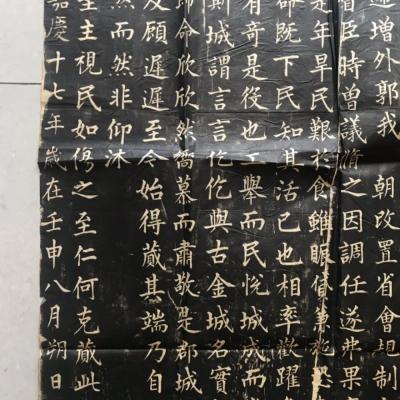 增外郭我 朝改置省會規制
臣時曾議脩之因調任遂弗果
是年旱民艱於食雖賑貸兼施恐
命既下民知其活己也相率歡躍
有奇是役也工舉而民悅城成而
斯城謂言言仡仡與古金城名實
歸命欣欣然嚮慕而肅敬是郡城
及顧遲遲至今始得蕆其端乃自
然而然非仰沐
主視民如傷之至仁何克蕆此
嘉慶十七年歲在壬申八月朔日